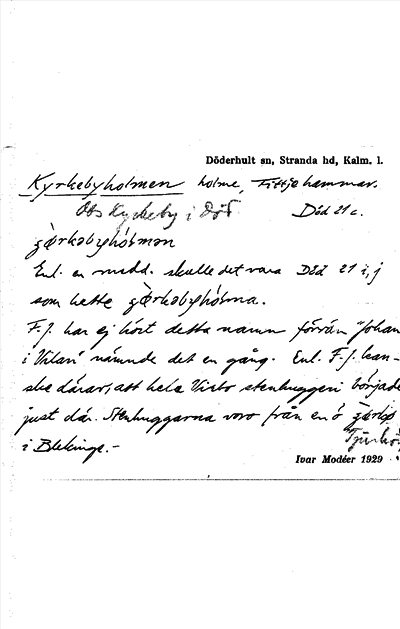 Döderhult sn, Stranda hd, Kalm. l.
Kyrkebyholmen holme, Fittjehammar.
Obs Kyrkeby i Död
Död 21 c.
Enl. en medd. skulle det vara Död 21 i, j
som hette
F.J. har ej hört detta namn förrän "Johan
i Vilan" nämnde det en gång. Enl. F.J. kan-
ske därav, att hela Virbo stenhuggeri började
just där. Stenhuggarna voro från en ö
i Blekinge.-
Ivar Modéer 1929